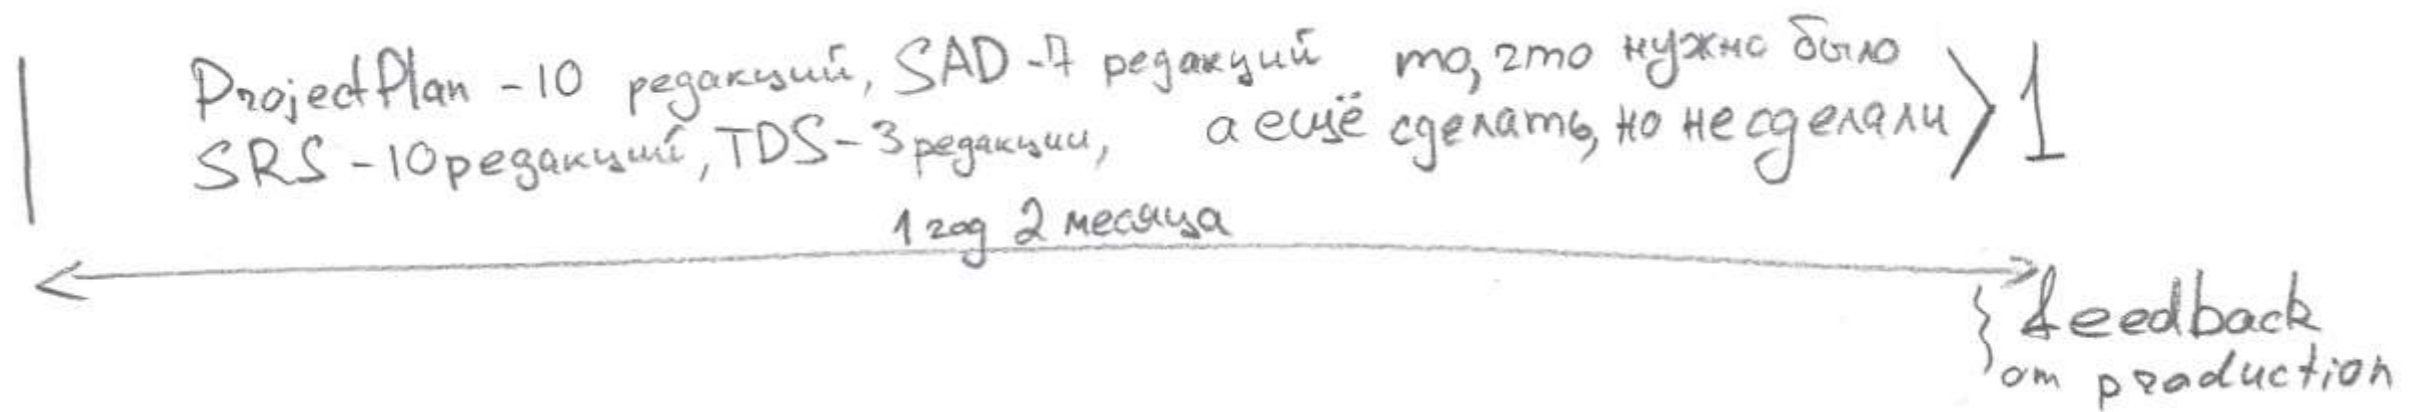 ProjectPlan - 10 редакций, SAD - 7 редакций то, что нужно было
SRS - 10 редакций, TDS - 3 редакции, а ещё сделать, но не сделали 1
1 год 2 месяца
feedback
от production